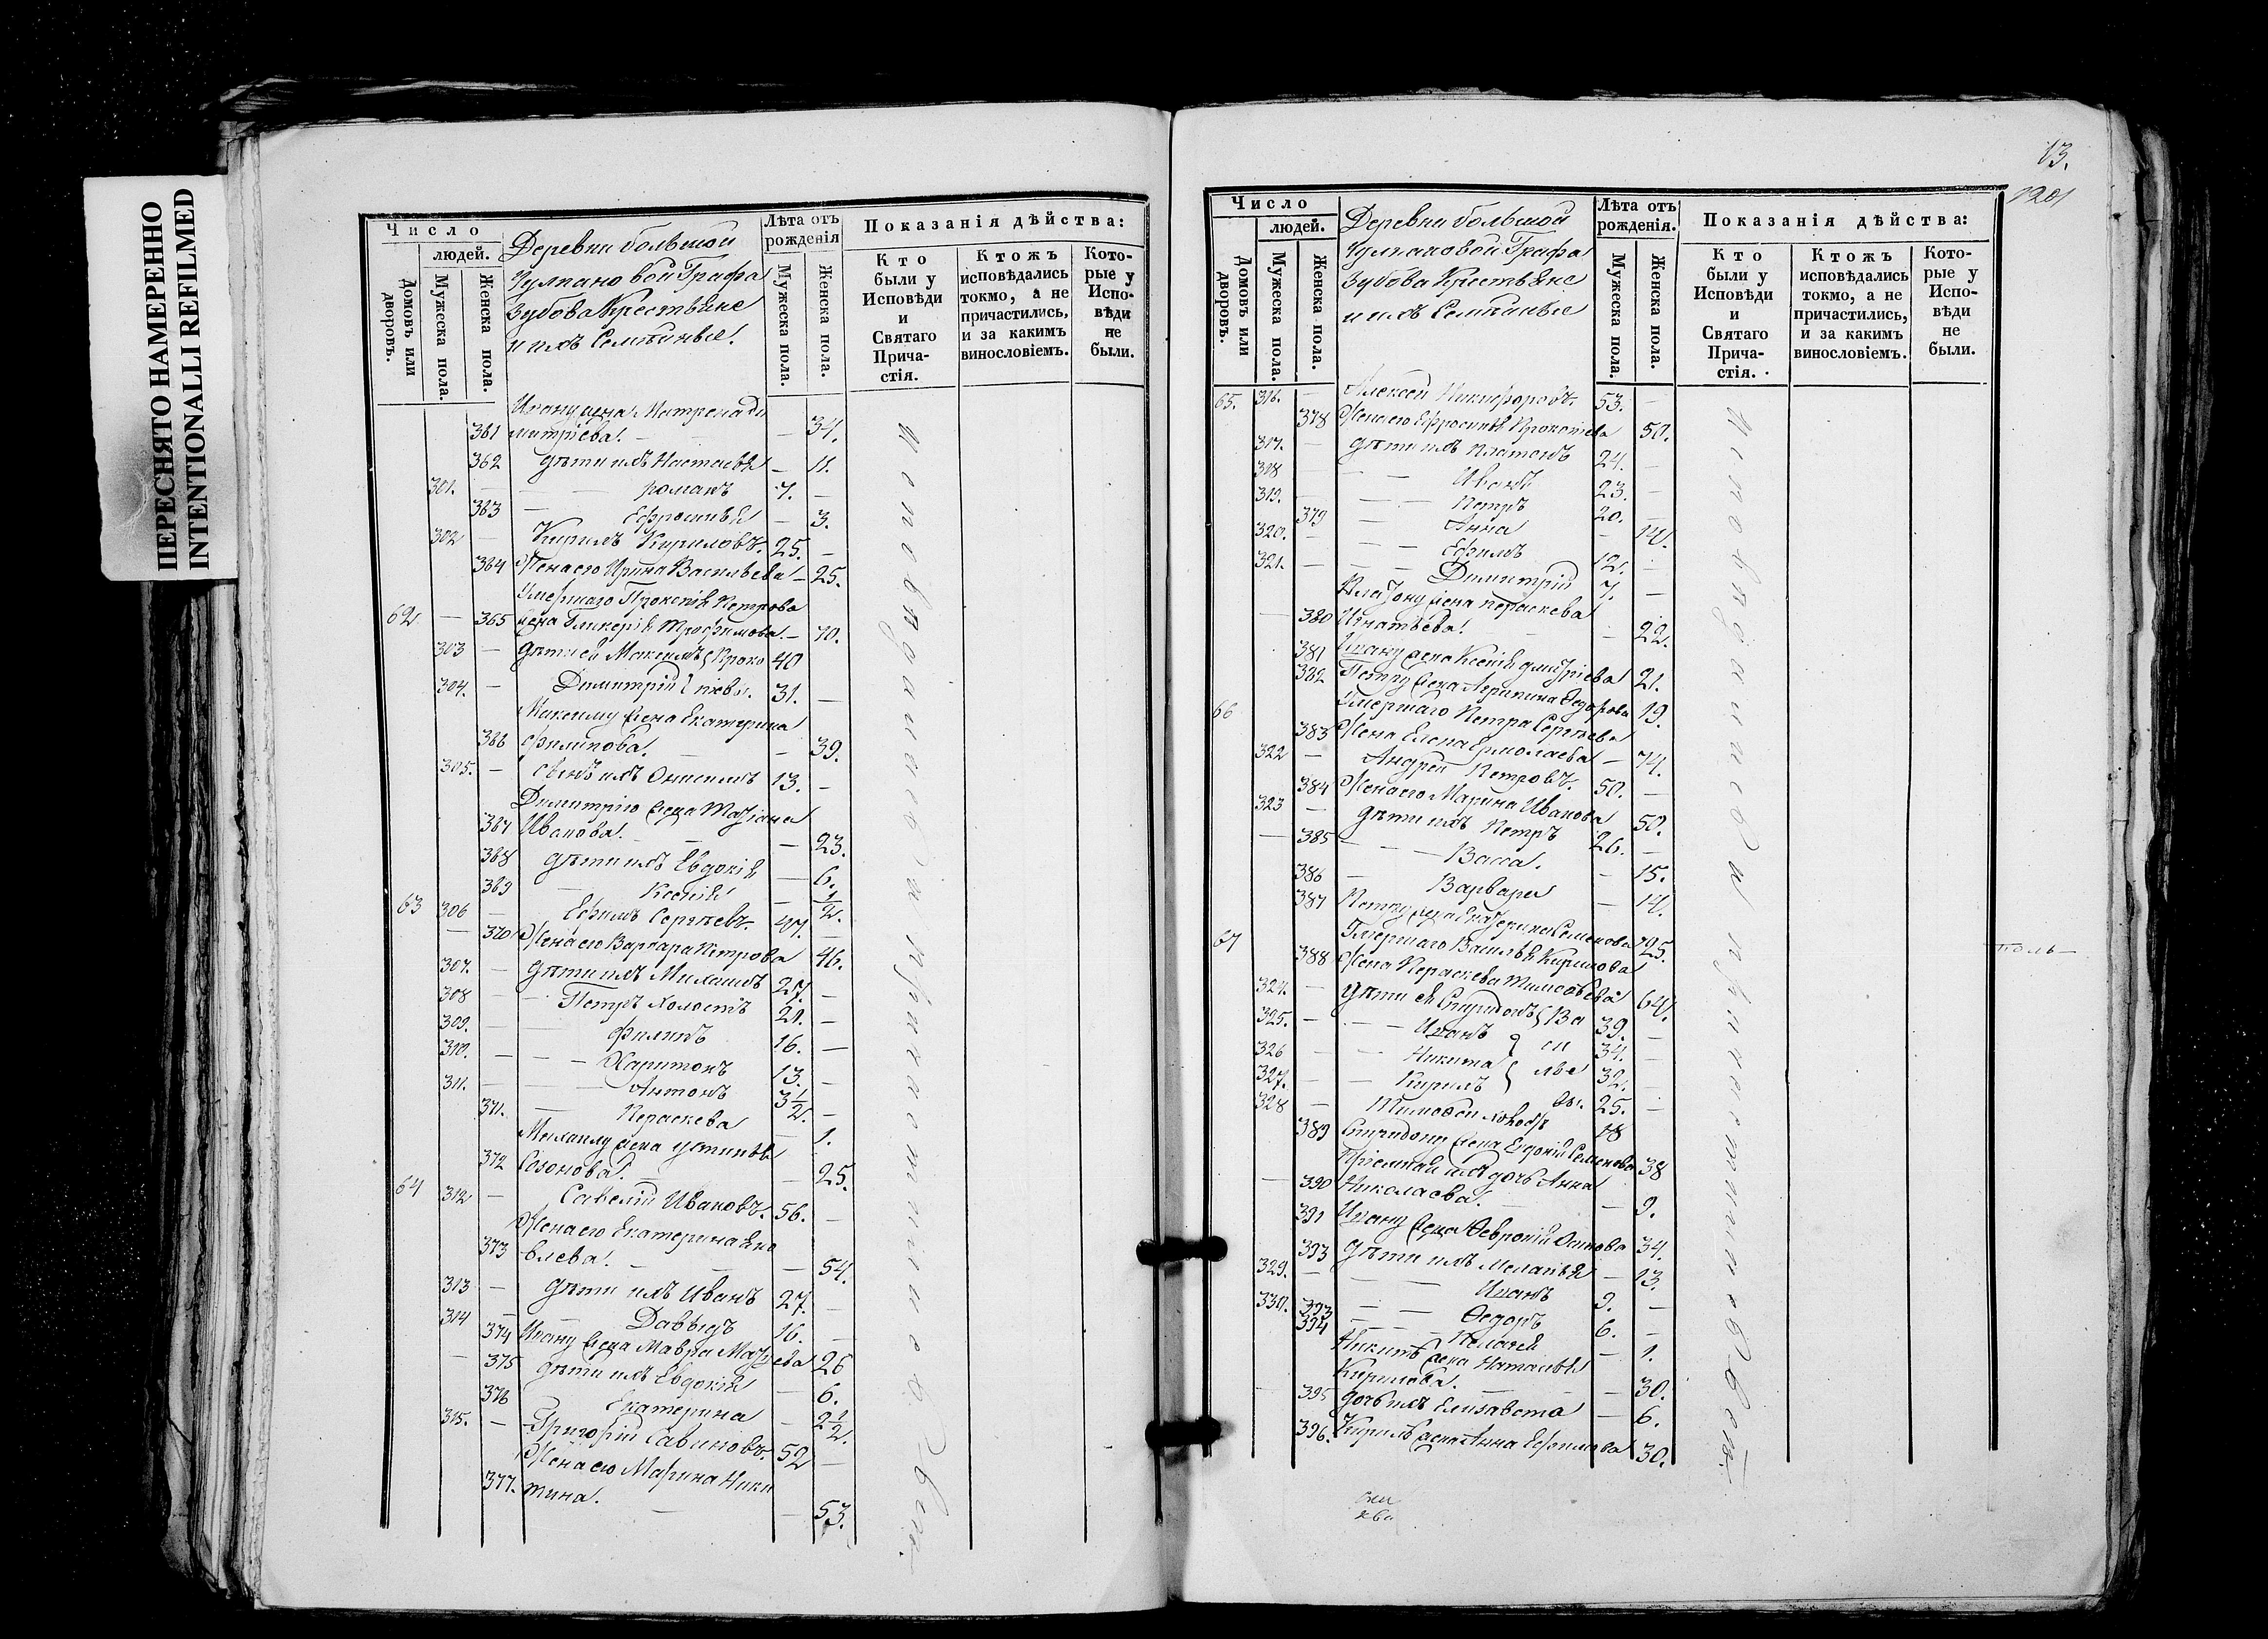 ПЕРЕСНЯТО НАМЕРЕННО
INTENTIONALLI REFILMED
Число
людей.
Домовъ или дворовъ.
Мужеска пола.
Женска пола.
Деревни большой
Чулпановой Графа
Зубова Крестьяне
и ихъ Семѣйные.
Лѣта отъ рожденія
Мужеска пола.
Женска пола.
Показанія дѣйства:
Кто были у Исповѣди и Святаго Причастія.
Ктожъ исповѣдались токмо, а не причастились, и за какимъ винословіемъ.
Которые у Исповѣди не были.
Ивану жена Матрена Ди
361 митріева. — 34.
362 дѣти ихъ Настасья — 11.
301. — Романъ 7. —
363 — Ефросинья — 3.
302 — Кирилъ Кириловъ. 25. —
364 Жена его Ирина Васильева — 25.
Умершаго Прокопія Петрова
62 — 365 жена Гликерія Трофимова. — 70.
303 — дѣти ея Максимъ Проко 40
304. — Димитрій пьевы. 31. —
Максиму жена Екатерина
366 Филипова. — 39.
305. — сынъ ихъ Онисимъ 13. —
Димитрію жена Татіана
367 Иванова. — 23.
368 дѣти ихъ Евдокія — 6.
369 — Ксенія — 1/2.
63 306 — Ефимъ Сергѣевъ. 47. —
— 370 Жена его Варвара Петрова 46.
307. — дѣти ихъ Михаилъ 27. —
308 — Петръ холостъ 21. —
309. — Филипъ 16. —
310. — Харитонъ 13. —
311. — Антонъ 3 1/2. —
371. — Пераскева — 1.
Михаилу жена Устинья
372 Созонова. — 25.
64 312 — Савелій Ивановъ. 56. —
Жена его Екатерина Яко
373 влева. — 54.
313 — дѣти ихъ Иванъ 27. —
314 — Давыдъ 16. —
374 Ивану жена Мавра 26
— 375 дѣти ихъ Евдокія — 6.
376 Екатерина — 2 1/2.
315. — Григорій Савиновъ. 52 —
Жена его Марина Ники
377. тина. — 53.
13.
1201
Число
людей.
Домовъ или дворовъ.
Мужеска пола.
Женска пола.
Деревни большой
Чулпановой Графа
Зубова Крестьяне
и ихъ Семѣйные
Лѣта отъ рожденія.
Мужеска пола.
Женска пола.
Показанія дѣйства:
Кто были у Исповѣди и Святаго Причастія.
Ктожъ исповѣдались токмо, а не причастились, и за какимъ винословіемъ.
Которые у Исповѣди не были.
65. 316. — Алексѣй Никифоровъ. 53. —
378 Жена его Ефросинья 50.
317. — дѣти ихъ Платонъ 24. —
318 — Иванъ 23. —
319. — Петръ 20. —
379 — Анна — 14.
320. — Ефимъ 12. —
321. — Димитрій 7. —
Платону жена Пераскева
— 380 Игнатьева. — 22.
381 Ивану жена Ксенія Дмитріева 21.
382 Петру жена Агрипина Федорова 19.
66 Умершаго Петра Сергѣева
383 Жена Елена Ермолаева — 74.
322 — Андрей Петровъ. 50. —
384 Жена его Марина Иванова 50.
323 — дѣти ихъ Петръ 26. —
— 385 — Васса. — 15.
386 — Варвара — 14.
387 Петру жена Екатерина Семенова 25.
67 Умершаго Василья Кирилова
388 Жена Пераскева Тимофѣева 64.
324. — дѣти ея Спиридонъ Ва 39. —
325. — Иванъ си 34. —
326 — Никита лье 32. —
327. — Кирилъ вы. 25. —
328 — Тимофѣй холостъ 18
389 Спиридону жена Евдокія Семенова 38
Пріемная ихъ дочь Анна
— 390 Николаева. — 9.
391 Ивану жена Февронія Осипова 34.
393 дѣти ихъ Меланья — 13.
329. — Иванъ 9. —
330. 393 — Федоръ 6. —
394 — Пелагея — 1.
Никитѣ жена Наталья
Кирилова. — 30.
— 395 дочь ихъ Елизавета — 6.
396. Кирилѣ жена Анна Ефимова 30.